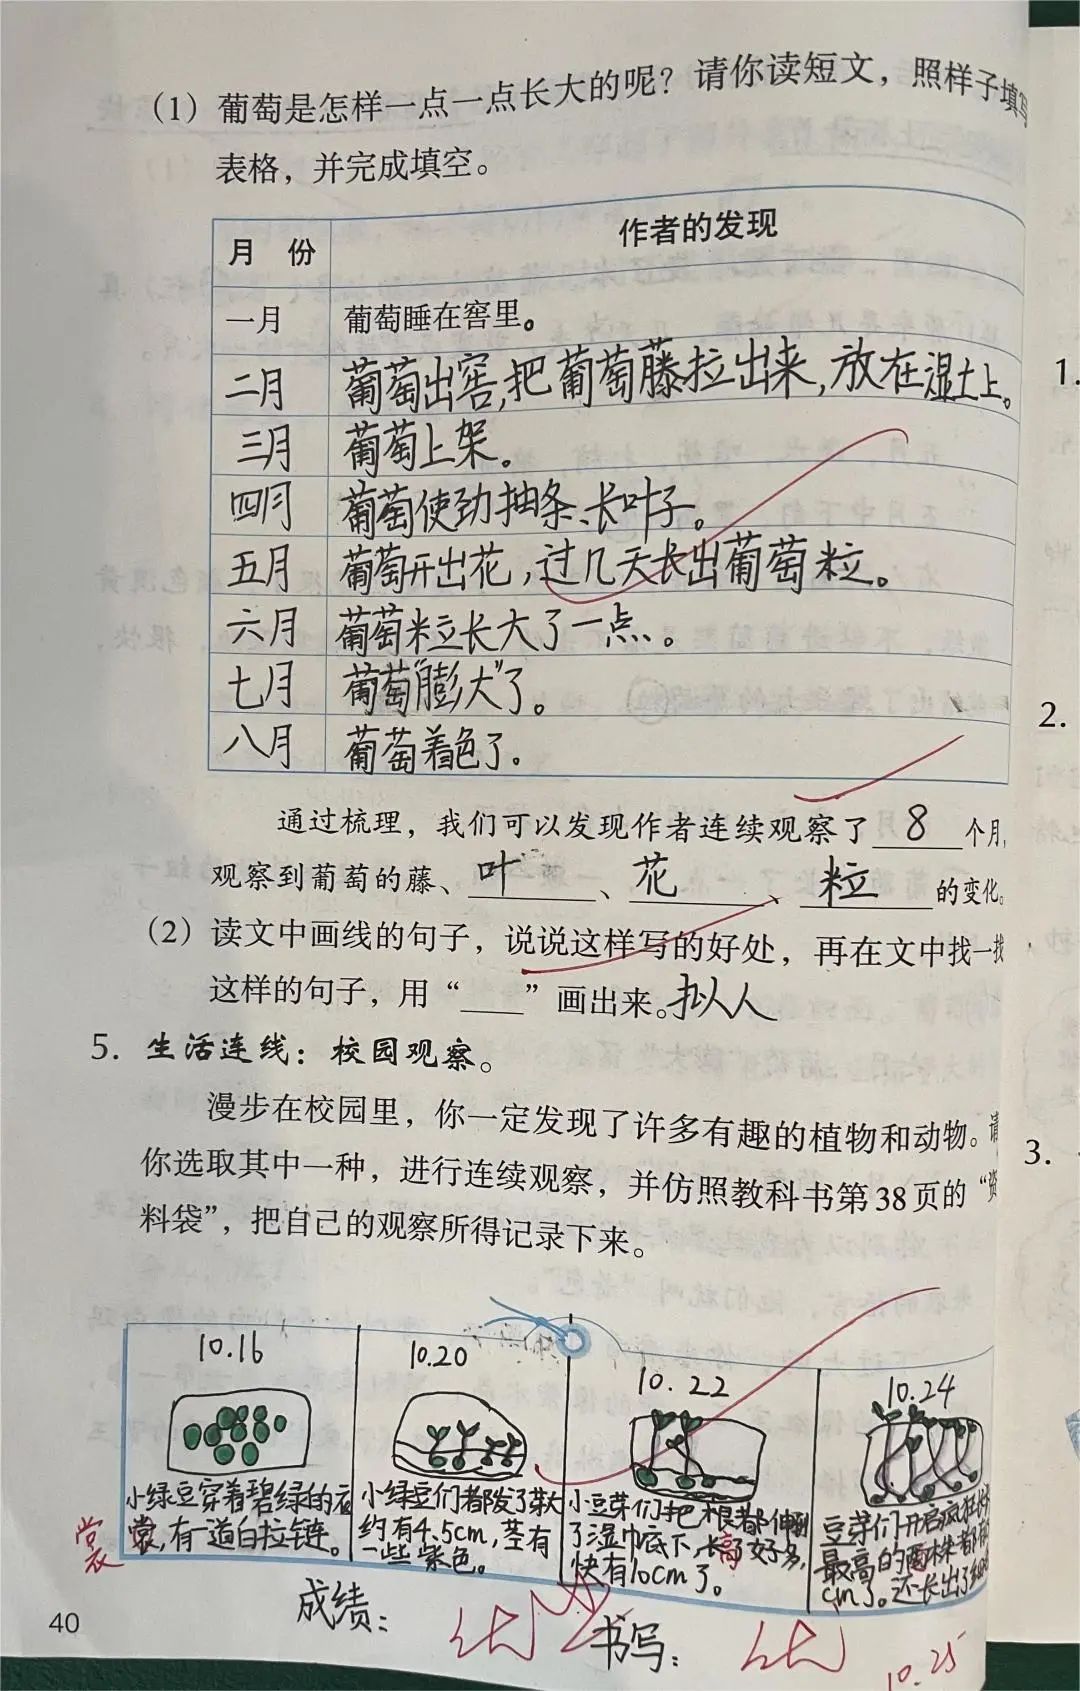 (1) 葡萄是怎样一点一点长大的呢？请你读短文，照样子填写
表格，并完成填空。
月 份 作者的发现
一月 葡萄睡在窖里。
二月 葡萄出窖,把葡萄藤拉出来,放在湿土上。
三月 葡萄上架。
四月 葡萄使劲抽条、长叶子。
五月 葡萄开出花,过几天长出葡萄粒。
六月 葡萄粒长大了一点。
七月 葡萄“膨大”了。
八月 葡萄着色了.
通过梳理，我们可以发现作者连续观察了 8 个月,
观察到葡萄的藤、叶、花、粒的变化。
(2) 读文中画线的句子，说说这样写的好处，再在文中找一找
这样的句子，用“___”画出来。拟人
5. 生活连线：校园观察。
漫步在校园里，你一定发现了许多有趣的植物和动物。请
你选取其中一种，进行连续观察，并仿照教科书第38页的“资
料袋”，把自己的观察所得记录下来。
10.16
小绿豆穿着碧绿的衣
裳,有一道白拉链。
裳
10.20
小绿豆们都发了芽大
约有4.5cm,茎有
一些紫色。
10.22
小豆芽们把根都伸到
了湿巾底下,长高了好多,
快有10cm了。
10.24
豆芽们开启疯狂
最高的两株都有
cm了。还长出了
成绩: 优
书写: 优
10.25
40
1.
2.
3.